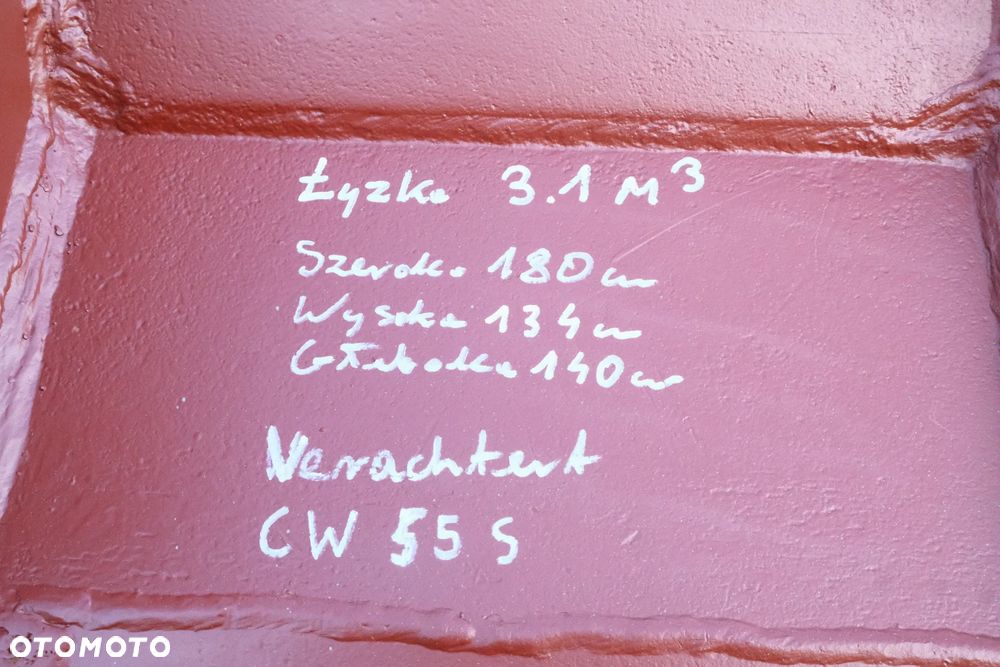 Łyzka 3.1 m³
Szeroka 180 cm
Wysoka 134 cm
Głeboka 140 cm
Verachtert
CW 55 S
OTOMOTO